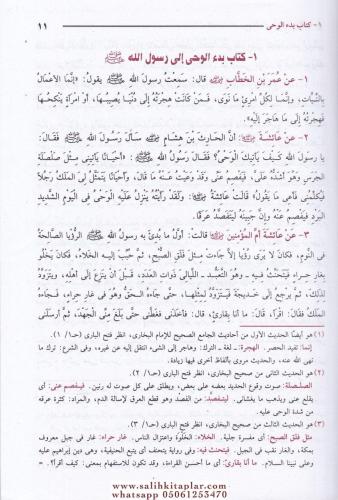 ١- كتاب بدء الوحى
١١
١- كتاب بدء الوحى إلى رسول الله ﷺ
١- عَنْ عُمَرَ بْنِ الخَطَّابِ ﷺ قال: سَمِعْتُ رسولَ اللهِ ﷺ يقولُ: «إنَّمَا الأعْمَالُ
بِالنِّيَّاتِ، وإنَّمَا لِكُلِّ امْرِئٍ مَا نَوَى، فَمَنْ كَانَتْ هِجْرَتُهُ إِلَى دُنْيَا يُصِيبُهَا، أَوْ امْرَأَةٍ يَنْكِحُهَا
فَهِجْرَتُهُ إِلَى مَا هَاجَرَ إِلَيْهِ».
٢- عَنْ عَائِشَةَ: أنَّ الحَارِثَ بْنَ هِشَامٍ سَأَلَ رَسُولَ اللهِ ﷺ فَقَالَ:
يا رسولَ اللهِ كَيْفَ يَأْتِيكَ الْوَحْىُ؟ فَقَالَ رَسُولُ اللهِ ﷺ: «أَحْيَانًا يَأْتِينِى مِثْلَ صَلْصَلَةِ
الجَرَسِ وَهُوَ أَشَدُّهُ عَلَىَّ، فَيَفْصِمُ عَنِّى وَقَدْ وَعَيْتُ عَنْهُ مَا قَالَ، وَأَحْيَانًا يَتَمَثَّلُ لِىَ الْمَلَكُ رَجُلًا
فَيُكَلِّمُنِى فَأَعِى مَا يَقُولُ» قَالَتْ عَائِشَةُ: وَلَقَدْ رَأَيْتُهُ يَنْزِلُ عَلَيْهِ الْوَحْىُ فِى الْيَوْمِ الشَّدِيدِ
الْبَرْدِ فَيَفْصِمُ عَنْهُ وَإِنَّ جَبِينَهُ لَيَتَفَصَّدُ عَرَقًا.
٣- عَنْ عَائِشَةَ أُمِّ الْمُؤْمِنِينَ قالت: أَوَّلُ مَا بُدِئَ بِهِ رسول الله ﷺ الرُّؤْيَا الصَّالِحَةُ
فى النَّوْمِ، فَكَانَ لَا يَرَى رُؤْيَا إِلَّا جَاءَتْ مِثْلَ فَلَقِ الصُّبْحِ، ثُمَّ حُبِّبَ إِلَيْهِ الخَلَاءُ، فَكَانَ يَخْلُو
بِغَارِ حِرَاءٍ، فَيَتَحَنَّثُ فِيهِ - وَهُوَ التَّعَبُّدُ - اللَّيَالِىَ ذَوَاتِ العَدَدِ، قَبْلَ أَنْ يَنْزِعَ إِلَى أَهْلِهِ، وَيَتَزَوَّدُ
لِذَلِكَ، ثُمَّ يَرْجِعُ إِلَى خَدِيجَةَ فَيَتَزَوَّدُ لِمِثْلِهَا، حَتَّى جَاءَهُ الحَقُّ وَهُوَ فِى غَارِ حِرَاءٍ، فَجَاءَهُ
المَلَكُ فَقَالَ: اقْرَأْ، قَالَ: مَا أَنَا بِقَارِئٍ، قَالَ: فَأَخَذَنِى فَغَطَّنِى حَتَّى بَلَغَ مِنِّى الجَهْدَ، ثُمَّ أَرْسَلَنِى
(١) هو أيضًا الحديث الأول من أحاديث الجامع الصحيح للإمام البخارى، انظر فتح البارى (حـ١/ ١).
إنما: تفيد الحصر. الهجرة: - لغة - الترك: وهاجر إلى الشىء انتقل إليه عن غيره، وفى الشرع: ترك ما
نهى الله عنه، والحديث مروى بألفاظ أخرى فيها زيادة.
(٢) هو الحديث الثانى من صحيح البخارى، انظر فتح البارى (حـ١/ ٢).
الصلصلة: صوت وقوع الحديد بعضه على بعض، ويطلق على كل صوت له رنين. فيفصم عنى: أى
يقلع عنى ويذهب ما يغشانى. ليتفصد: من الفصد وهو قطع العرق لإسالة الدم، والمراد: كثرة عرقه
من شدة الوحى عليه.
(٣) هو الحديث الثالث من صحيح البخارى، انظر فتح البارى (حـ١/ ٣).
مثل فلق الصبح: أى مفسرة جلية. الخلاء: الخلوة واعتزال الناس. غار حراء: غار فى جبل معروف
بمكة، والغار نقب فى الجبل. فيتحنث: وفى رواية يتحنف أى يتبع الحنيفية، وهى دين إبراهيم عليه
وعلى نبينا السلام. ما أنا بقارئ: أى ما أحسن القراءة، وقد تكون للاستفهام بمعنى: كيف أقرأ؟. =
www.salihkitaplar.com
whatsapp 05061253470